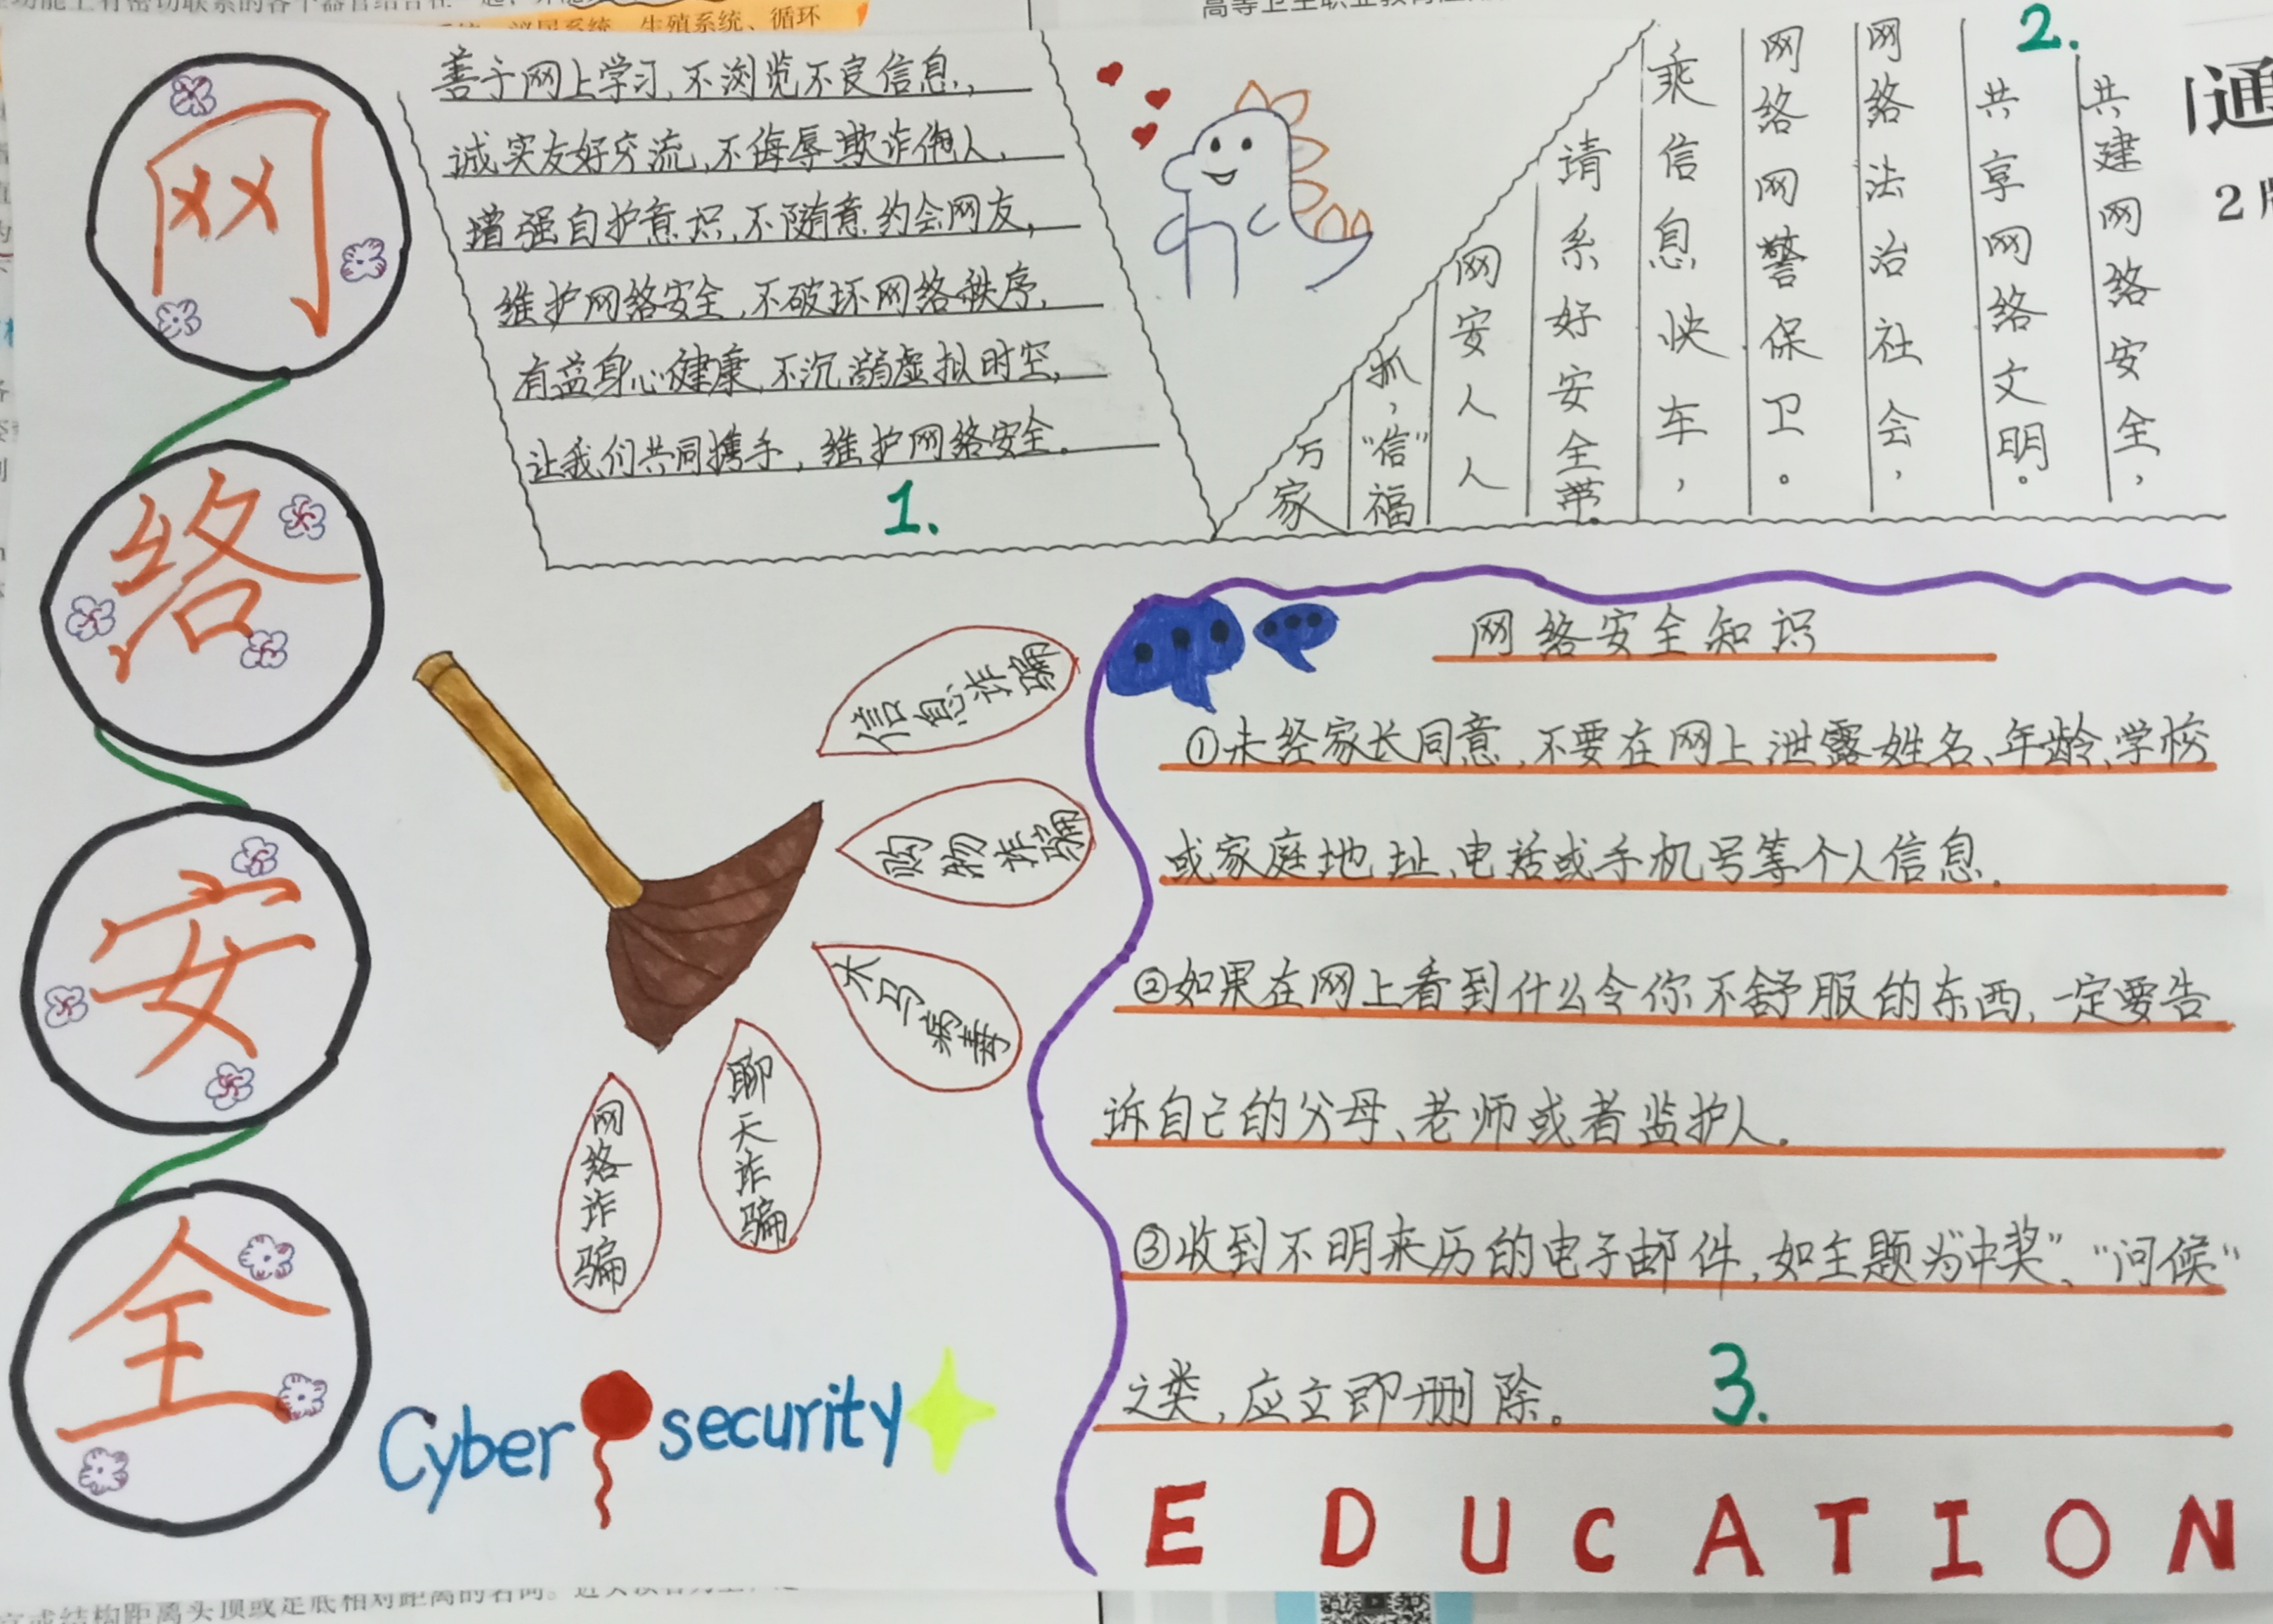 网
络
安
全
善于网上学习，不浏览不良信息，
诚实友好交流，不侮辱欺诈他人，
增强自护意识，不随意约会网友，
维护网络安全，不破坏网络秩序，
有益身心健康，不沉溺虚拟时空，
让我们共同携手，维护网络安全。
1.
2.
共建网络安全，
共享网络文明。
网络法治社会，
网络网警保卫。
乘信息快车，
请系好安全带。
网安人人
抓，“信”福
万家
信息诈骗
购物诈骗
木马病毒
聊天诈骗
网络诈骗
Cyber security
网络安全知识
①未经家长同意，不要在网上泄露姓名、年龄、学校
或家庭地址、电话或手机号等个人信息。
②如果在网上看到什么令你不舒服的东西，一定要告
诉自己的父母、老师或者监护人。
③收到不明来历的电子邮件，如主题为“中奖”、“问候”
之类，应立即删除。
3.
EDUCATION
泌尿系统、生殖系统、循环
通
2版